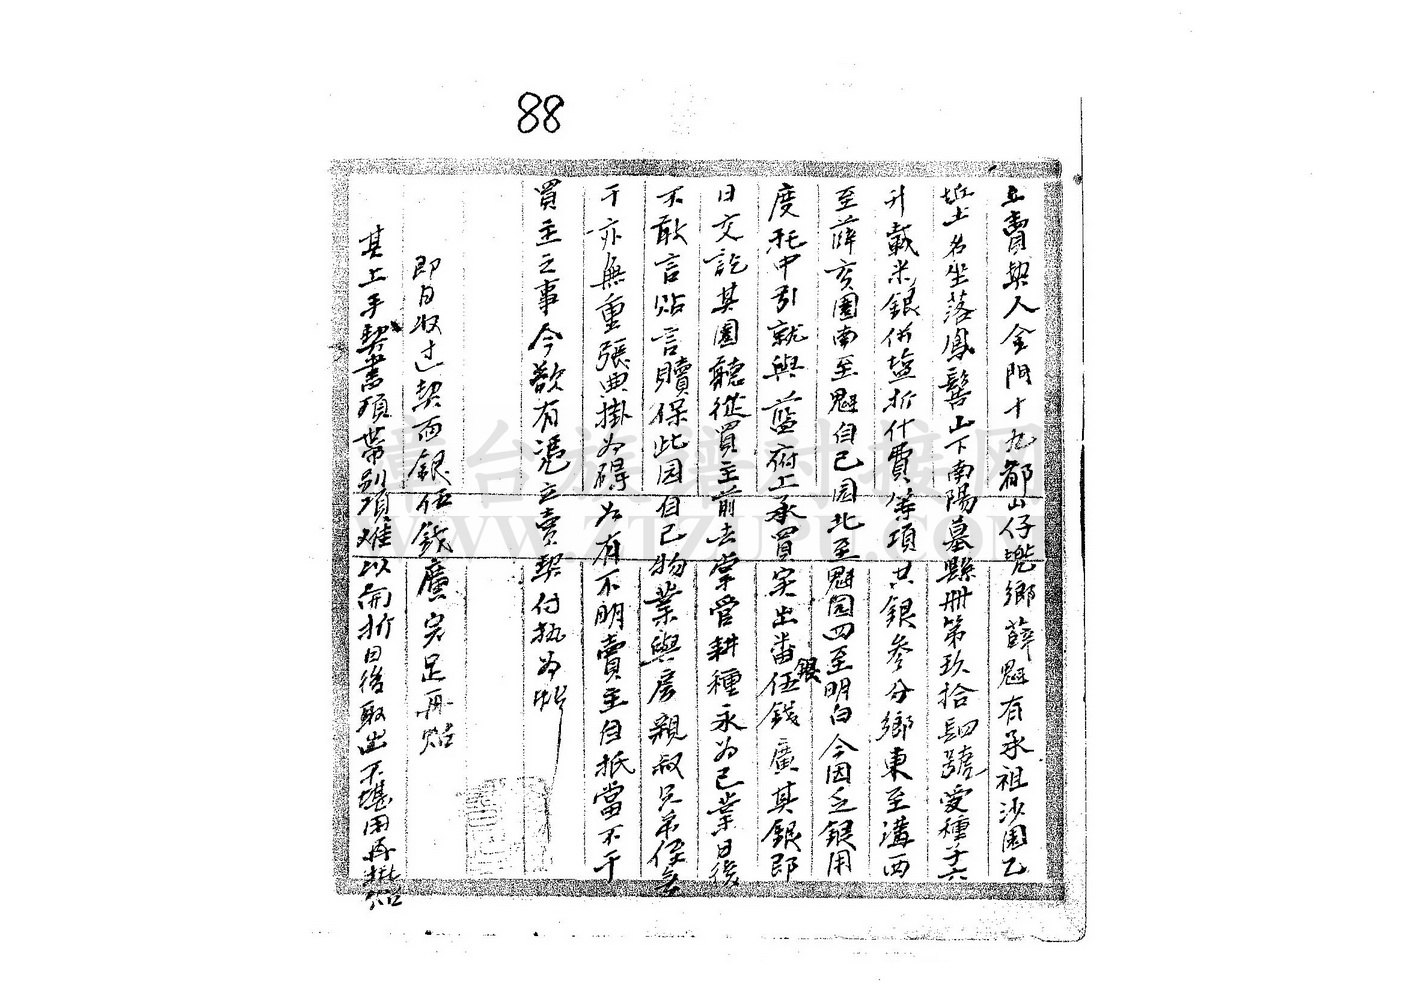 88
立賣契人金門十九都山仔兠鄉薛魁有承祖沙園乙
坵土名坐落鳳髻山下南陽墓縣册第玖拾四號受種子六
升載米銀併塩折什費等項共銀參分鄉東至溝西
至薛亥園南至魁自己园北至魁园四至明白今因乏銀用
度托中引就與蓝府上承買実出番銀伍錢廣其銀即
日交訖其園聽從買主前去掌管耕種永為己業日後
不敢言贴言贖保此园自己物業與房親叔兄弟侄無
干亦無重張典掛為碍如有不明賣主自抵當不干
買主之事今欲有憑立賣契付执為炤
即日收过契面銀伍錢廣完足再炤
其上手契書碩帶别項难以開折日後取出不堪用再批炤
章台族譜对接网
WWW.ZTZUPU.COM